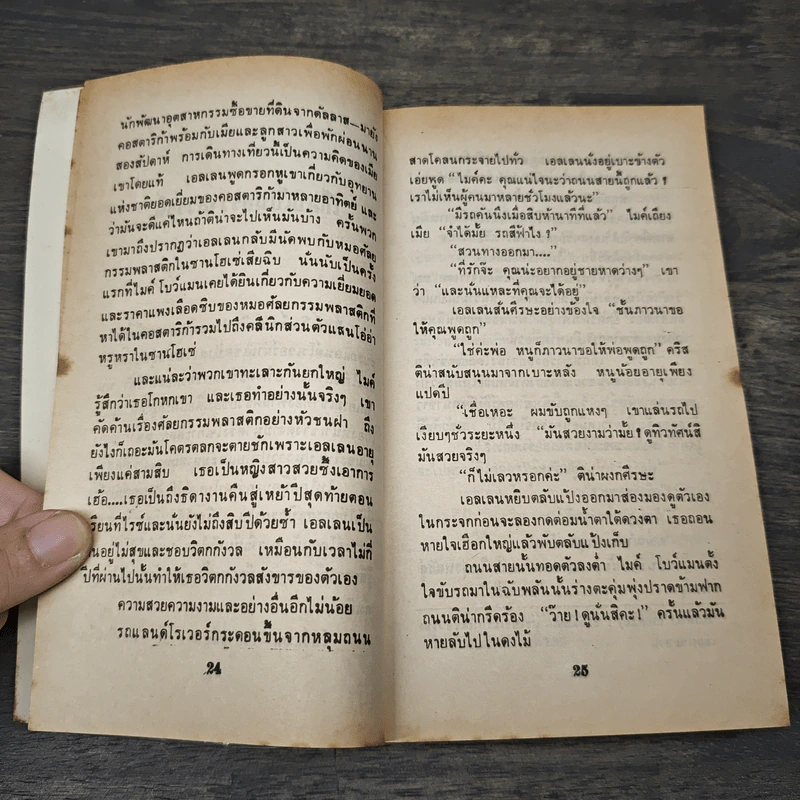 นักพัฒนาอุตสาหกรรมซื้อขายที่ดินจากดัลลาส—มายัง
คอสตาริก้าพร้อมกับเมียและลูกสาวเพื่อพักผ่อนนาน
สองสัปดาห์ การเดินทางเที่ยวนี้เป็นความคิดของเมีย
เขาโดยแท้ เอลเลนพูดกรอกหูเขาเกี่ยวกับอุทยาน
แห่งชาติยอดเยี่ยมของคอสตาริก้ามาหลายอาทิตย์ และ
ว่ามันจะดีแค่ไหนถ้าติน่าจะไปเห็นมันบ้าง ครั้นพวก
เขามาถึงปรากฏว่าเอลเลนกลับมีนัดพบกับหมอศัลย
กรรมพลาสติกในซานโฮเซ่เสียฉิบ นั่นนับเป็นครั้ง
แรกที่ไมค์ โบว์แมนเคยได้ยินเกี่ยวกับความเยี่ยมยอด
และราคาแพงเลือดซิบของหมอศัลยกรรมพลาสติกที่
หาได้ในคอสตาริก้ารวมไปถึงคลีนิกส่วนตัวแสนโอ่อ่า
หรูหราในซานโฮเซ่
และแน่ละว่าพวกเขาทะเลาะกันยกใหญ่ ไมค์
รู้สึกว่าเธอโกหกเขา และเธอทำอย่างนั้นจริงๆ เขา
คัดค้านเรื่องศัลยกรรมพลาสติกอย่างหัวชนฝา ถึง
ยังไงก็เถอะมันโคตรตลกจะตายชักเพราะเอลเลนอายุ
เพียงแค่สามสิบ เธอเป็นหญิงสาวสวยซึ้งเอาการ
เฮ้อ....เธอเป็นถึงธิดางานคืนสู่เหย้าปีสุดท้ายตอน
เรียนที่ไรซ์และนั่นยังไม่ถึงสิบปีด้วยซ้ำ เอลเลนเป็น
นอยู่ไม่สุขและชอบวิตกกังวล เหมือนกับเวลาไม่กี่
ปีที่ผ่านไปนั้นทำให้เธอวิตกกังวลสังขารของตัวเอง
ความสวยความงามและอย่างอื่นอีกไม่น้อย
รถแลนด์โรเวอร์กระดอนขึ้นจากหลุมถนน
24
สาดโคลนกระจายไปทั่ว เอลเลนนั่งอยู่เบาะข้างตัว
เอ่ยพูด “ไมค์คะ คุณแน่ใจนะว่าถนนสายนี้ถูกแล้ว?
เราไม่เห็นผู้คนมาหลายชั่วโมงแล้วนะ”
“มีรถคันนึงเมื่อสิบห้านาทีที่แล้ว” ไมค์เถียง
เมีย “จำได้มั้ย รถสีฟ้าไง?”
“สวนทางออกมา....”
“ที่รักจ๊ะ คุณน่ะอยากอยู่ชายหาดว่างๆ” เขา
ว่า “และนั่นแหละที่คุณจะได้อยู่”
เอลเลนสั่นศีรษะอย่างข้องใจ “ชั้นภาวนาขอ
ให้คุณพูดถูก”
“ใช่ค่ะพ่อ หนูก็ภาวนาขอให้พ่อพูดถูก” คริส
ติน่าสนับสนุนมาจากเบาะหลัง หนูน้อยอายุเพียง
แปดปี
“เชื่อเหอะ ผมขับถูกแหงๆ เขาแล่นรถไป
เงียบๆชั่วระยะหนึ่ง “มันสวยงามว่ามั้ย? ดูทิวทัศน์สิ
มันสวยจริงๆ
“ก็ไม่เลวหรอกค่ะ” ติน่าผงกศีรษะ
เอลเลนหยิบตลับแป้งออกมาส่องมองดูตัวเอง
ในกระจกก่อนจะลองกดต่อมน้ำตาใต้ดวงตา เธอถอน
หายใจเฮือกใหญ่แล้วพับตลับแป้งเก็บ
ถนนสายนั้นทอดตัวลงต่ำ ไมค์ โบว์แมนตั้ง
ใจขับรถมาในฉับพลันนั้นร่างตะคุ่มพุ่งปราดข้ามฟาก
ถนนติน่ากรีดร้อง “ว๊าย! ดูนั่นสิคะ!” ครั้นแล้วมัน
หายลับไปในดงไม้
25